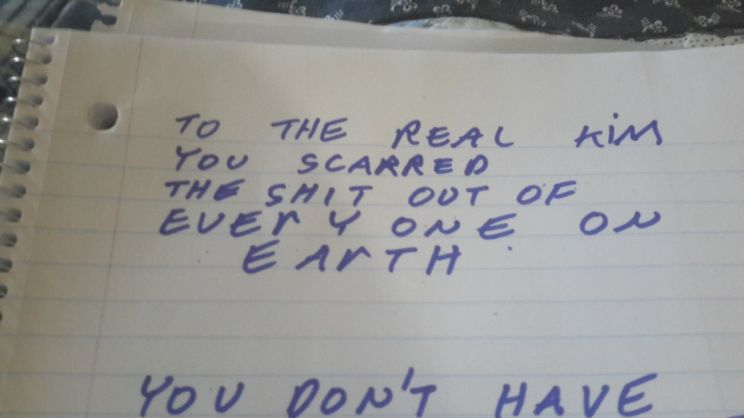 TO THE REAL KiM
YOU SCARRED
THE SHIT OUT OF
EVErY ONE ON
EArTH.
YOU DON'T HAVE